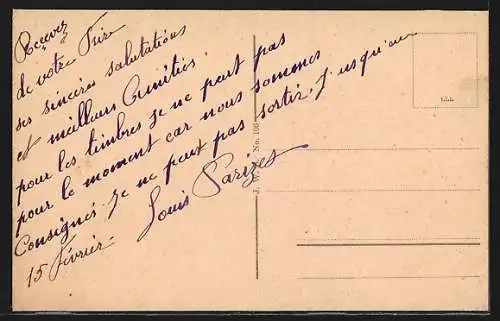 Recevez
de votre Frère
ses sincères salutations
et meilleurs Amitiés.
pour les timbres je ne peut pas
pour le moment car nous sommes
Consignés. Je ne peut pas sortir, jusqu'au
15 Février. Louis Parizet
J. W. B. No. 106
L.L.L